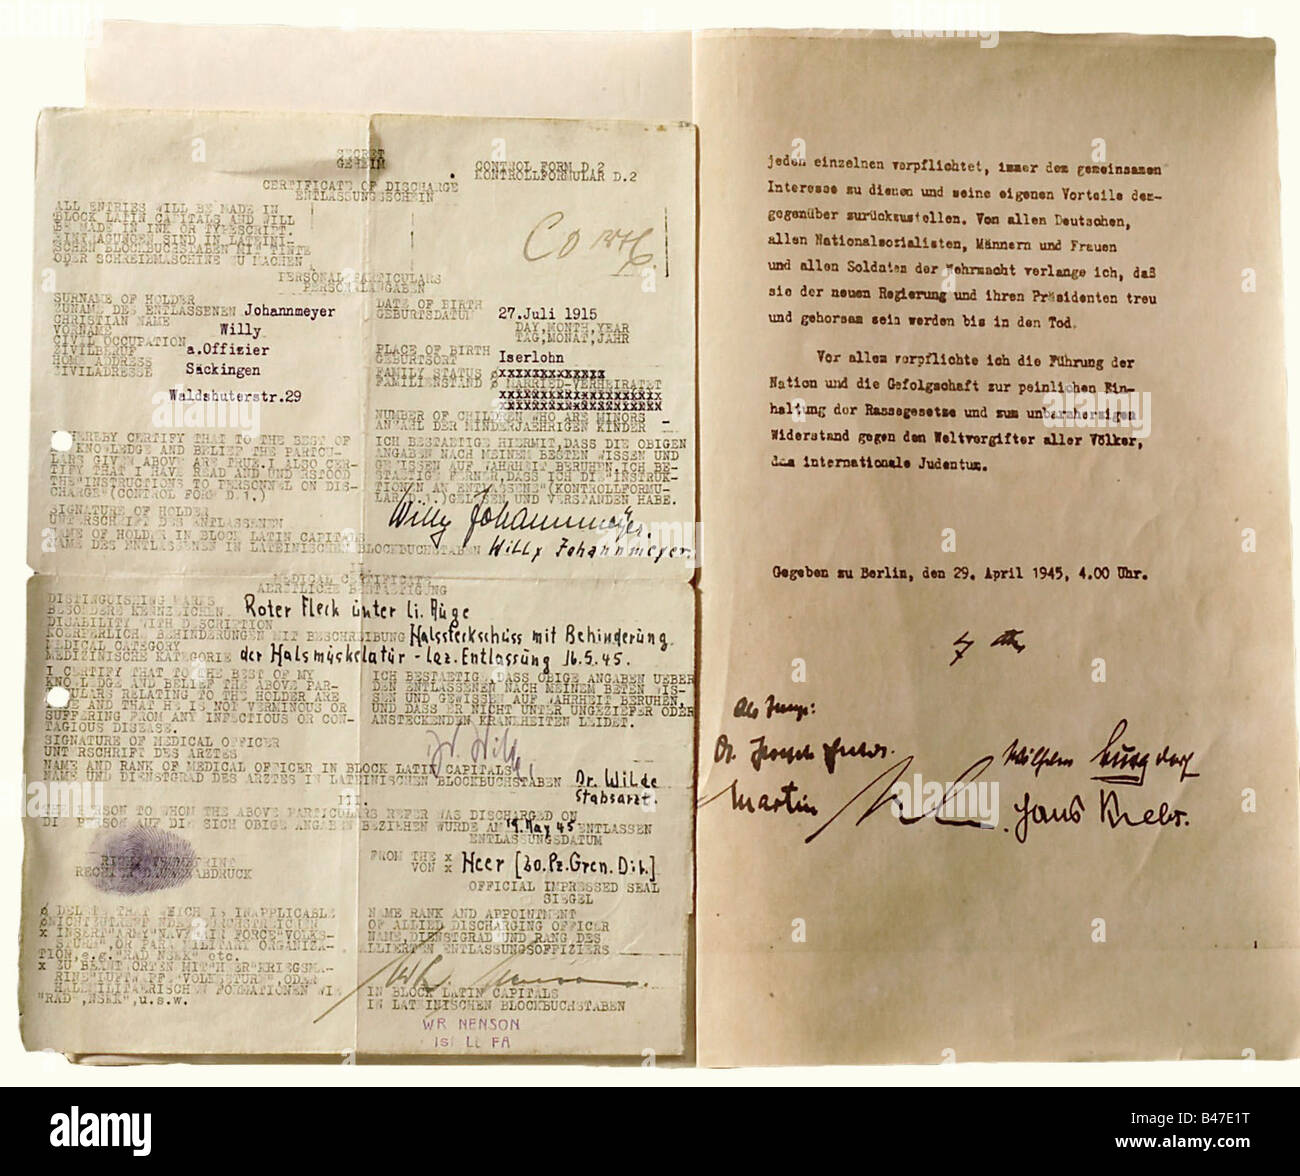 SECRET
GEHEIM
CONTROL FORM D.2
KONTROLLFORMULAR D.2
CERTIFICATE OF DISCHARGE
ENTLASSUNGSSCHEIN
ALL ENTRIES WILL BE MADE IN
BLOCK LATIN CAPITALS AND WILL
BE MADE IN INK OR TYPESCRIPT.
PERSONAL PARTICULARS
PERSONALANGABEN
SURNAME OF HOLDER
ZUNAME DES ENTLASSENEN Johannmeyer
CHRISTIAN NAME
VORNAME Willy
CIVIL OCCUPATION
ZIVILBERUF a.Offizier
HOME ADDRESS
CIVILADRESSE Säckingen
Waldshuterstr.29
DATE OF BIRTH
GEBURTSDATUM 27.Juli 1915
DAY,MONTH,YEAR
TAG,MONAT,JAHR
PLACE OF BIRTH
GEBURTSORT Iserlohn
FAMILY STATUS xxxxxxxxxxxxx
FAMILIENSTAND MARRIED-VERHEIRATET
NUMBER OF CHILDREN WHO ARE MINORS
ANZAHL DER MINDERJÄHRIGEN KINDER -
HEREBY CERTIFY THAT TO THE BEST OF
KNOWLEDGE AND BELIEF THE PARTCU-
LARS GIVEN ABOVE ARE TRUE.I ALSO CER-
TIFY THAT I HAVE READ AND UNDERSTOOD
THE"INSTRUCTIONS TO PERSONNEL ON DIS-
CHARGE"(CONTROL FORM D.1.)
ICH BESTAETIGE HIERMIT,DASS DIE OBIGEN
ANGABEN NACH MEINEM BESTEN WISSEN UND
GEWISSEN AUF WAHRHEIT BERUHEN.ICH BE-
STAETIGE FERNER,DASS ICH DIE"INSTRUK-
TIONEN AN ENTLASSENE"(KONTROLLFORMU-
LAR D.1.)GELESEN UND VERSTANDEN HABE.
SIGNATURE OF HOLDER
UNTERSCHRIFT DES ENTLASSENEN Willy Johannmeyer.
NAME OF HOLDER IN BLOCK LATIN CAPITALS
NAME DES ENTLASSENEN IN LATEINISCHEN BLOCKBUCHSTABEN Willy Johannmeyer.
II.
MEDICAL CERTIFICATE
AERZTLICHE BESTAETIGUNG
DISTINGUISHING MARKS
BESONDERE KENNZEICHEN Roter Fleck unter li. Auge
DISABILITY WITH DESCRIPTION
KOERPERLICHE BEHINDERUNGEN MIT BESCHREIBUNG Halssteckschuss mit Behinderung
MEDICAL CATEGORY
MEDIZINISCHE KATEGORIE der Halsmuskelatur - Laz. Entlassung 16.5.45.
I CERTIFY THAT TO THE BEST OF MY
KNOWLEDGE AND BELIEF THE ABOVE PAR-
CULARS RELATING TO THE HOLDER ARE
AND THAT HE IS NOT VERMINOUS OR
SUFFERING FROM ANY INFECTIOUS OR CON-
TAGIOUS DISEASE.
ICH BESTAETIGE,DASS OBIGE ANGABEN UEBER
DEN ENTLASSENEN NACH MEINEM BETEN WIS-
SEN UND GEWISSEN AUF WAHRHEIT BERUHEN,
UND DASS ER NICHT UNTER UNGEZIEFER ODER
ANSTECKENDEN KRANKHEITEN LEIDET.
SIGNATURE OF MEDICAL OFFICER
UNTERSCHRIFT DES ARZTES Dr. Wilde
NAME AND RANK OF MEDICAL OFFICER IN BLOCK LATIN CAPITALS
NAME UND DIENSTGRAD DES ARZTES IN LATINISCHEN BLOCKBUCHSTABEN Dr. Wilde
Stabsarzt.
III.
THE PERSON TO WHOM THE ABOVE PARTICULARS REFER WAS DISCHARGED ON
DI PERSON AUF DIE SICH OBIGE ANGABEN BEZIEHEN WURDE AM 19 May 45 ENTLASSEN
ENTLASSUNGSDATUM
RIGHT THUMBPRINT
RECHTER DAUMENABDRUCK
FROM THE x
VON x Heer
OFFICIAL IMPRESSED SEAL
SIEGEL
DELETE THAT WHICH IS INAPPLICABLE
x INSERT"ARMY"NAVY"AIR FORCE"VOLKS-
STURM",OR PARA MILITARY ORGANIZA-
TION,e.g."RAD NSKK" etc.
"RAD",NSKK",u.s.w.
NAME RANK AND APPOINTMENT
OF ALLIED DISCHARGING OFFICER
NAME,DIENSTGRAD UND RANG,DES
ALLIIERTEN ENTLASSUNGSOFFIZIERS
IN BLOCK LATIN CAPITALS
IN LATEINISCHEN BLOCKBUCHSTABEN
WR NENSON
jeden einzelnen verpflichtet, immer dem gemeinsamen
Interesse zu dienen und seine eigenen Vorteile dem-
gegenüber zurückzustellen. Von allen Deutschen,
allen Nationalsozialisten, Männern und Frauen
und allen Soldaten der Wehrmacht verlange ich, daß
sie der neuen Regierung und ihren Präsidenten treu
und gehorsam sein werden bis in den Tod.
Vor allem verpflichte ich die Führung der
Nation und die Gefolgschaft zur peinlichen Ein-
haltung der Rassegesetze und zum unbarmherzigen
Widerstand gegen den Weltvergifter aller Völker,
das internationale Judentum.
Gegeben zu Berlin, den 29. April 1945, 4.00 Uhr.
Als Zeuge:
Wilhelm Burgdorf
Martin
Hans Krebs.
alamy
Image ID: B47E1T
www.alamy.com